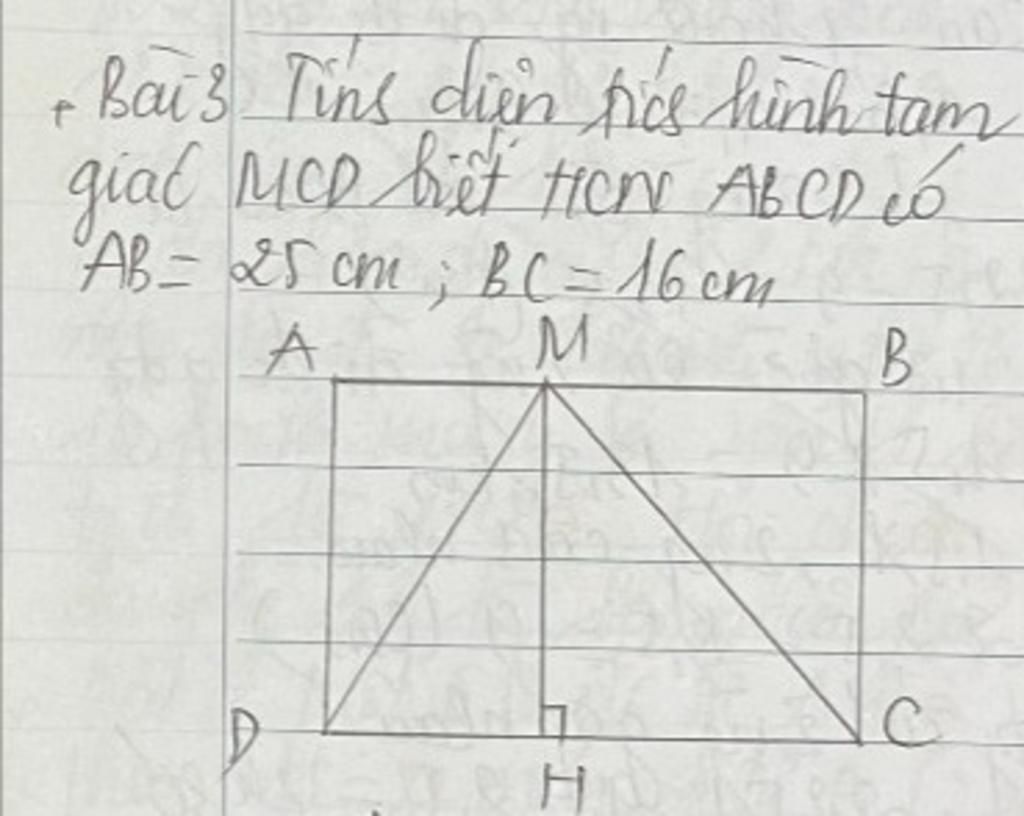 + Bài 3 Tính diện tích hình tam
giác MCD biết HCN ABCD có
AB = 25 cm ; BC = 16 cm
A M B
D C
H